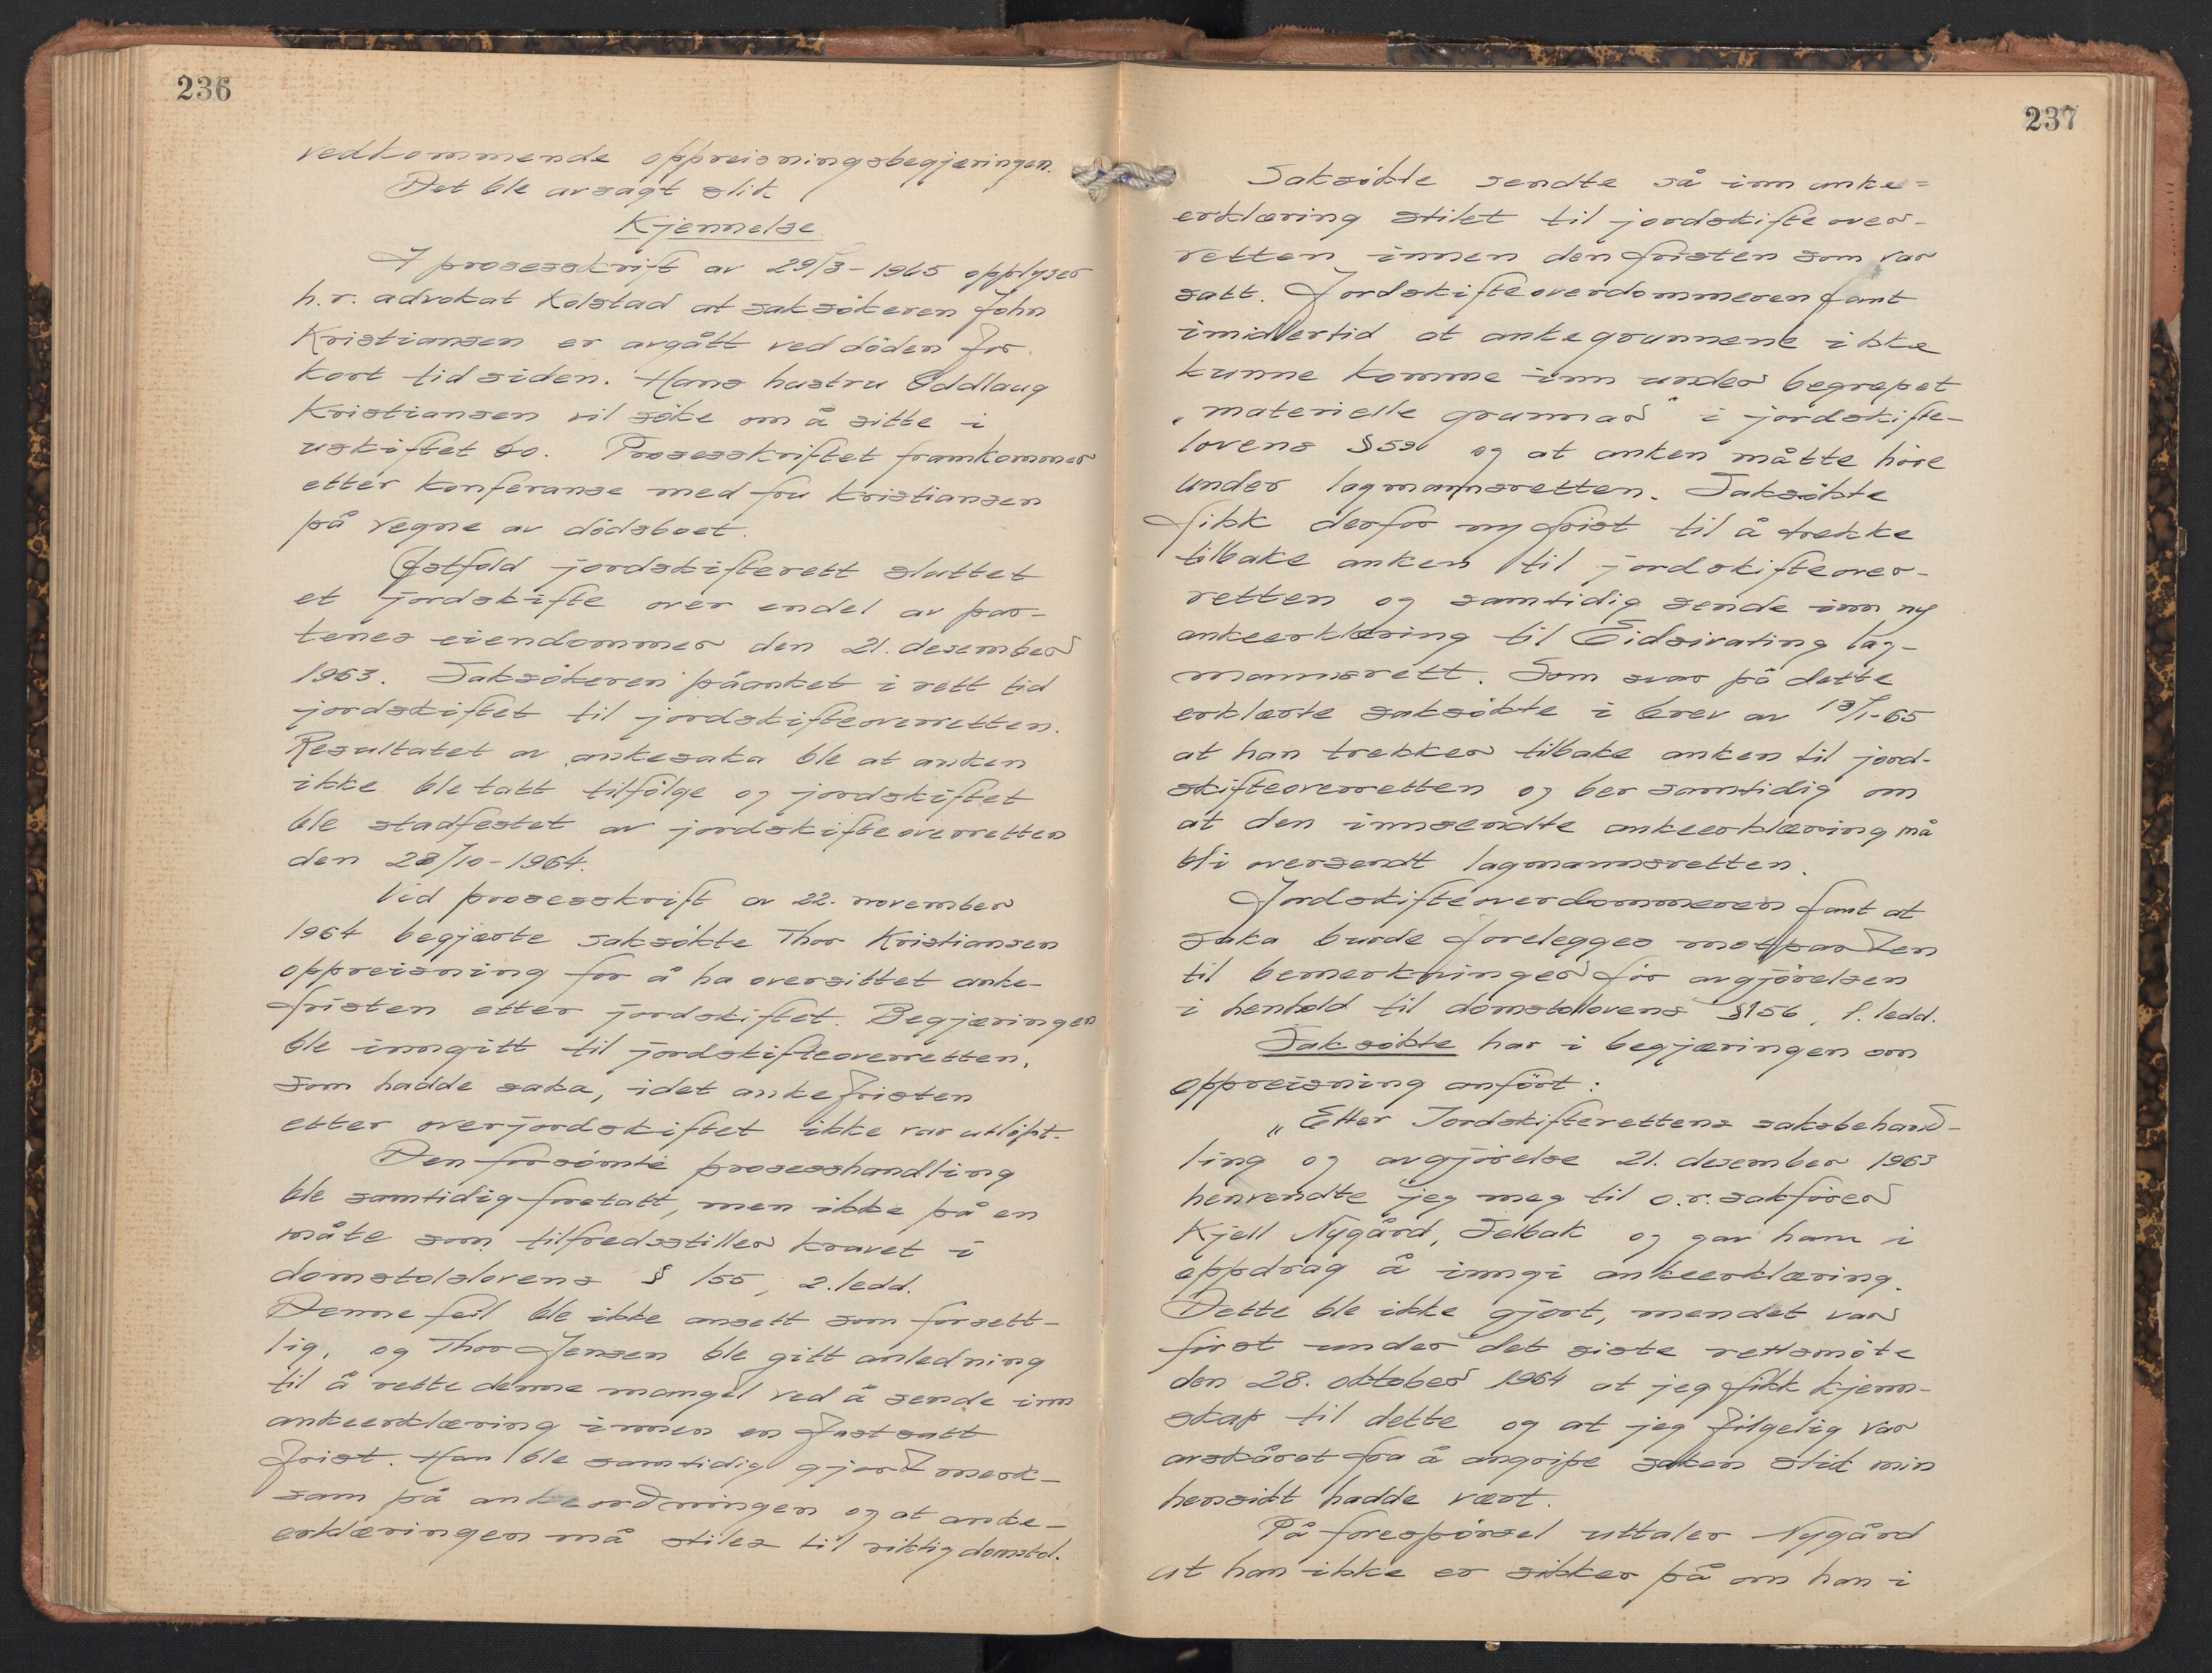 236
vedkommende oppreisningsbegjæringen.
Det ble avsagt slik
Kjennelse
I prosesskrift av 29/3-1965 opplyser
h.r. advokat Kolstad at saksökeren John
Kristiansen er avgått ved döden for
kort tid siden. Hans hustru Oddlaug
Kristiansen vil söke om å sitte i
uskiftet bo. Prosesskriftet framkommer
etter konferanse med fru Kristiansen
på vegne av dödsboet.
Östfold jordskifterett sluttet
et jordskifte over endel av par-
tenes eiendommer den 21. desember
1963. Saksökeren påanket i rett tid
jordskiftet til jordskifteoverretten.
Resultatet av ankesaka ble at anken
ikke ble tatt tilfölge og jordskiftet
ble stadfestet av jordskifteoverretten
den 28/10-1964.
Ved prosesskrift av 22. november
1964 begjærte saksökte Thor Kristiansen
oppreisning for å ha oversittet anke-
fristen etter jordskiftet. Begjæringen
ble inngitt til jordskifteoverretten,
som hadde saka, idet ankefristen
etter overjordskiftet ikke var utlöpt.
Den forsömte prosesshandling
ble samtidig foretatt, men ikke på en
måte som tilfredsstiller kravet i
domstolslovens § 155, 2. ledd.
Denne feil ble ikke ansett som forsett-
lig, og Thor Jensen ble gitt anledning
til å rette denne mangel ved å sende inn
ankeerklæring innen en fastsatt
frist. Han ble samtidig gjort merk-
sam på ankeordningen og at anke-
erklæringen må stiles til riktig domstol.
237
Saksökte sendte så inn anke=
erklæring stilet til jordskifteover-
retten innen den fristen som var
satt. Jordskifteoverdommeren fant
imidlertid at ankegrunnene ikke
kunne komme inn under begrepet
„materielle grunnar" i jordskifte-
lovens § 59 og at anken måtte höre
under lagmannsretten. Saksökte
fikk derfor ny frist til å trekke
tilbake anken til jordskifteover-
retten og samtidig sende inn ny
ankeerklæring til Eidsivating lag-
mannsrett. Som svar på dette
erklærte saksökte i brev av 13/1-65
at han trekker tilbake anken til jord-
skifteoverretten og ber samtidig om
at den innsendte ankeerklæring må
bli oversendt lagmannsretten.
Jordskifteoverdommeren fant at
saka burde forelegges motparten
til bemerkninger för avgjörelsen
i henhold til domstollovens § 156, 1. ledd.
Saksökte har i begjæringen om
oppreisning anfört:
„Etter Jordskifterettens saksbehand-
ling og avgjörelse 21. desember 1963
henvendte jeg meg til o.r. sakförer
Kjell Nygård, Selbak og gav ham i
oppdrag å inngi ankeerklæring.
Dette ble ikke gjort, men det var
först under det siste rettsmöte
den 28. oktober 1964 at jeg fikk kjenn-
skap til dette og at jeg fölgelig var
avskåret fra å angripe saken slik min
hensikt hadde vært.
På forespörsel uttaler Nygård
at han ikke er sikker på om han i